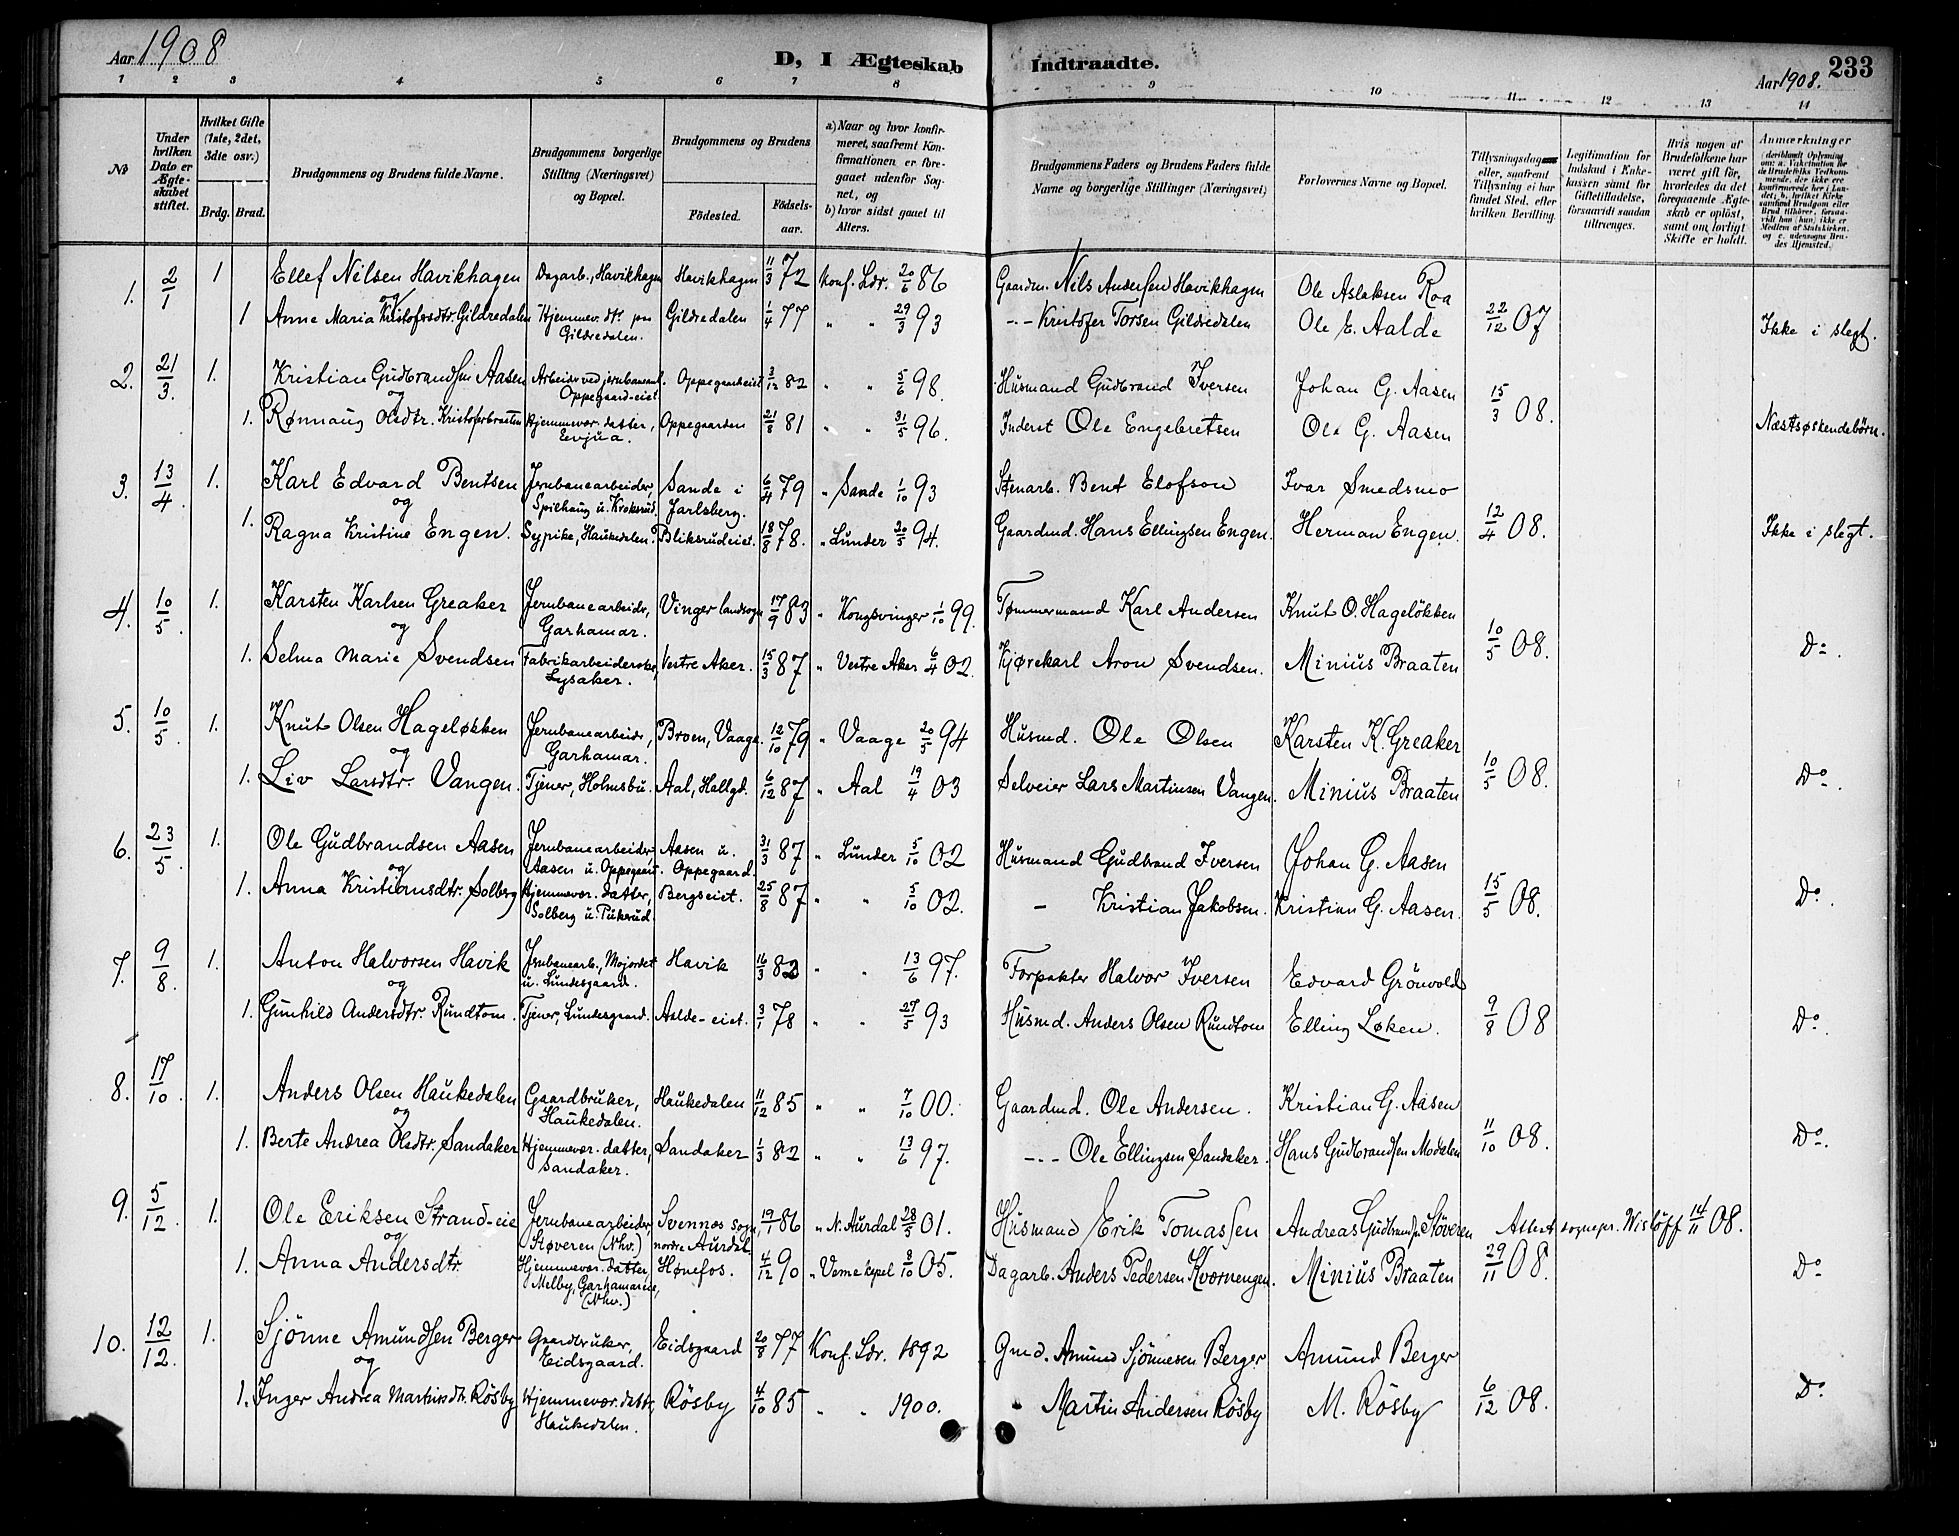 Aar 1908
D, I Ægteskab Indtraadte.
Aar 1908. 233
1 2 3 4 5 6 7 8 9 10 11 12 13 14
No
Under hvilken Dato er Ægteskabet stiftet.
Hvilket Gifte (1ste, 2det, 3die osv.)
Brdg. Brud.
Brudgommens og Brudens fulde Navne.
Brudgommens borgerlige Stilling (Næringsvei) og Bopæl.
Brudgommens og Brudens
Fødested.
Fødselsaar.
a) Naar og hvor konfirmeret, saafremt Konfirmationen er foregaaet udenfor Sognet, og
b) hvor sidst gaaet til Alters.
Brudgommens Faders og Brudens Faders fulde Navne og borgerlige Stillinger (Næringsvei)
Forlovernes Navne og Bopæl.
Tillysningsdag eller, saafremt Tillysning ei har fundet Sted, efter hvilken Bevilling.
Legitimation for Indskud i Enkekassen samt for Giftetilladelse, forsaavidt saadan tiltrænges.
Hvis nogen af Brudefolkene har været gift før, hvorledes da det foregaaende Ægteskab er opløst, samt om lovligt Skifte er holdt.
Anmærkninger
1. 2/1 1 Ellef Nilsen Havikhagen Dagarb., Havikhagen Havikhagen 11/3 72 Konf. Ldr. 20/6 86 Gaardm. Nils Andersen Havikhagen Ole Aslaksen Roa
og
1 Anne Maria Kristofersdtr. Gildredalen Hjemmev. dtr. paa Gildredalen. Gildredalen 1/4 77 " " 29/3 93 - - Kristofer Torsen Gildredalen Ole E. Aalde 22/12 07 Ikke i slegt.
2. 21/3. 1. Kristian Gudbrandsen Aasen Arbeider ved jernbaneanl. Oppegaard-eiet Oppegaardseiet 3/12 82 " " 5/6 98. Husmand Gudbrand Iversen Johan G. Aasen
og
1. Rønnaug Olsdtr. Kristoferbraaten Hjemmevær. datter, Evjua. Oppegaarden 21/8 81 " " 31/5 96. Inderst Ole Engebretsen Ole G. Aasen 15/3 08. Næstsøskendebørn.
3. 13/4 1. Karl Edvard Bentsen Jernbanearbeider, Spilhaug u. Kroksrud. Sande i Jarlsberg. 6/4 79 " Sande 1/10 93 Stenarb. Bent Elofson Ivar Smedsmo
og
1. Ragna Kristine Engen. Sypike, Haukedalen. Bliksrudeiet. 18/8 78. " Lunder 20/5 94. Gaardmd. Hans Ellingsen Engen. Herman Engen. 12/4 08. Ikke i slegt.
4. 10/5. 1. Karsten Karlsen Greaker Jernbanearbeider, Garhamar. Vinger landsogn 17/9 83 " Kongsvinger 1/10 99. Tømmermand Karl Andersen Knut O. Hageløkken
og
1. Selma Marie Svendsen Fabrikarbeiderske, Lysaker. Vestre Aker. 15/3 87 " Vestre Aker 6/4 02. Kjørekarl Aron Svendsen. Minius Braaten 10/5 08. Do.
5. 10/5. 1. Knut Olsen Hageløkken Jernbanearbeider, Garhamar. Broen, Vaage. 12/10 79 " Vaage 20/5 94 Husmd. Ole Olsen Karsten K. Greaker
og
1. Liv Larsdtr. Vangen. Tjener, Holmsbu. Aal, Hallgd. 6/12 87 " Aal 19/4 03 Selveier Lars Martinsen Vangen. Minius Braaten 10/5 08. Do.
6. 23/5. 1. Ole Gudbrandsen Aasen Jernbanearbeider Aasen u. Oppegaard. Aasen u. Oppegaard. 31/3 87 " Lunder 5/10 02 Husmand Gudbrand Iversen Johan G. Aasen
og
1. Anna Kristiansdtr. Solberg Hjemmevær. datter, Solberg u. Pukerud. Bergseiet. 25/8 87 " " 5/10 02. - Kristian Jakobsen. Kristian G. Aasen. 15/5 08. Do.
7. 9/8. 1. Anton Halvorsen Havik Jernbanearb., Mojordet u. Lundesgaard. Havik 16/3 82 " " 13/6 97. Forpakter Halvor Iversen Edvard Grönvold
og
1. Gunhild Andersdtr. Rundtom. Tjener, Lundesgaard. Aalde-eiet. 3/1 78 " " 27/5 93 Husmd. Anders Olsen Rundtom Elling Løken. 9/8 08 Do.
8. 17/10. 1. Anders Olsen Haukedalen Gaardbruker, Haukedalen. Haukedalen 11/12 85 " " 7/10 00. Gaardmd. Ole Andersen. Kristian G. Aasen
og
1. Berte Andrea Olsdtr. Sandaker Hjemmevær. datter, Sandaker. Sandaker 1/3 82 " " 13/6 97. - - - Ole Ellingsen Sandaker. Hans Gudbrandsen Modalen 11/10 08. Do.
9. 5/12. 1. Ole Eriksen Strand-eie Jernbanearbeider, Støveren (Nhv.) Svennes sogn, nordre Aurdal 19/1 86 " N. Aurdal 28/5 01. Husmand Erik Tomassen Andreas Gudbrandsen Støveren Attest sognepr. Wisløff 14/11 08.
og
1. Anna Andersdtr. Hjemmevær. datter, Melby, Garhamareie, (Nhv.) Hønefos. 4/12 90 " Veme kapel 8/10 05. Dagarb. Anders Pedersen Kværnengen. Minius Braaten 29/11 08. Do
10. 12/12. 1. Sjönne Amundsen Berger Gaardbruker, Eidsgaard. Eidsgaard 20/8 77 Konf. Ldr. 1892 Gmd. Amund Sjönnesen Berger Amund Berger
og
1. Inger Andrea Martinsdtr. Rösby Hjemmevær. datter, Haukedalen. Rösby 4/10 85 " " 1900. " Martin Andersen Rösby M. Rösby 6/12 08. Do.